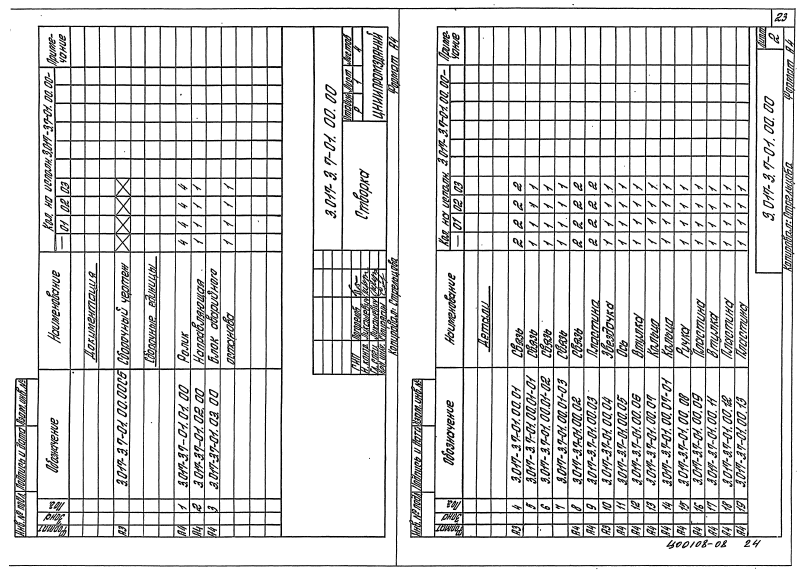 Инв. № подл. Подпись и дата Взам. инв. №
Формат Зона Поз. Обозначение Наименование Кол. на исполн. 3.017-3.7-01.00.00- Приме-чание
— 01 02 03
Документация
А3 3.017-3.7-01.00.00СБ Сборочный чертеж
Сборочные единицы
А4 1 3.017-3.7-01.01.00 Ролик 4 4 4 4
А4 2 3.017-3.7-01.02.00 Направляющая 1 1 1 1
А4 3 3.017-3.7-01.03.00 Блок аварийного
останова 1 1 1 1
3.017-3.7-01.00.00
ГИП
Створка
Стадия Лист Листов
Р 1 4
ЦНИИПРОМЗДАНИЙ
Копировал: Стрельцова Формат А4
23
Инв. № подл. Подпись и дата Взам. инв. №
Формат Зона Поз. Обозначение Наименование Кол. на исполн. 3.017-3.7-01.00.00- Приме-чание
— 01 02 03
Детали
А3 4 3.017-3.7-01.00.01 Связь 2 2 2 2
5 3.017-3.7-01.00.01-01 Связь 1 1 1 1
6 3.017-3.7-01.00.01-02 Связь 1 1 1 1
7 3.017-3.7-01.00.01-03 Связь 1 1 1 1
А4 8 3.017-3.7-01.00.02 Связь 2 2 2 2
А4 9 3.017-3.7-01.00.03 Пластина 2 2 2 2
А3 10 3.017-3.7-01.00.04 Звездочка 1 1 1 1
А4 11 3.017-3.7-01.00.05 Ось 1 1 1 1
А4 12 3.017-3.7-01.00.06 Втулка 1 1 1 1
А4 13 3.017-3.7-01.00.07 Кольцо 1 1 1 1
А4 14 3.017-3.7-01.00.07-01 Кольцо 1 1 1 1
А4 15 3.017-3.7-01.00.08 Ручка 1 1 1 1
А4 16 3.017-3.7-01.00.09 Пластина 1 1 1 1
А4 17 3.017-3.7-01.00.11 Втулка 1 1 1 1
А4 18 3.017-3.7-01.00.12 Пластина 1 1 1 1
А4 19 3.017-3.7-01.00.13 Пластина 1 1 1 1
3.017-3.7-01.00.00
Лист
2
Копировал: Стрельцова Формат А4
Ц00108-08 24